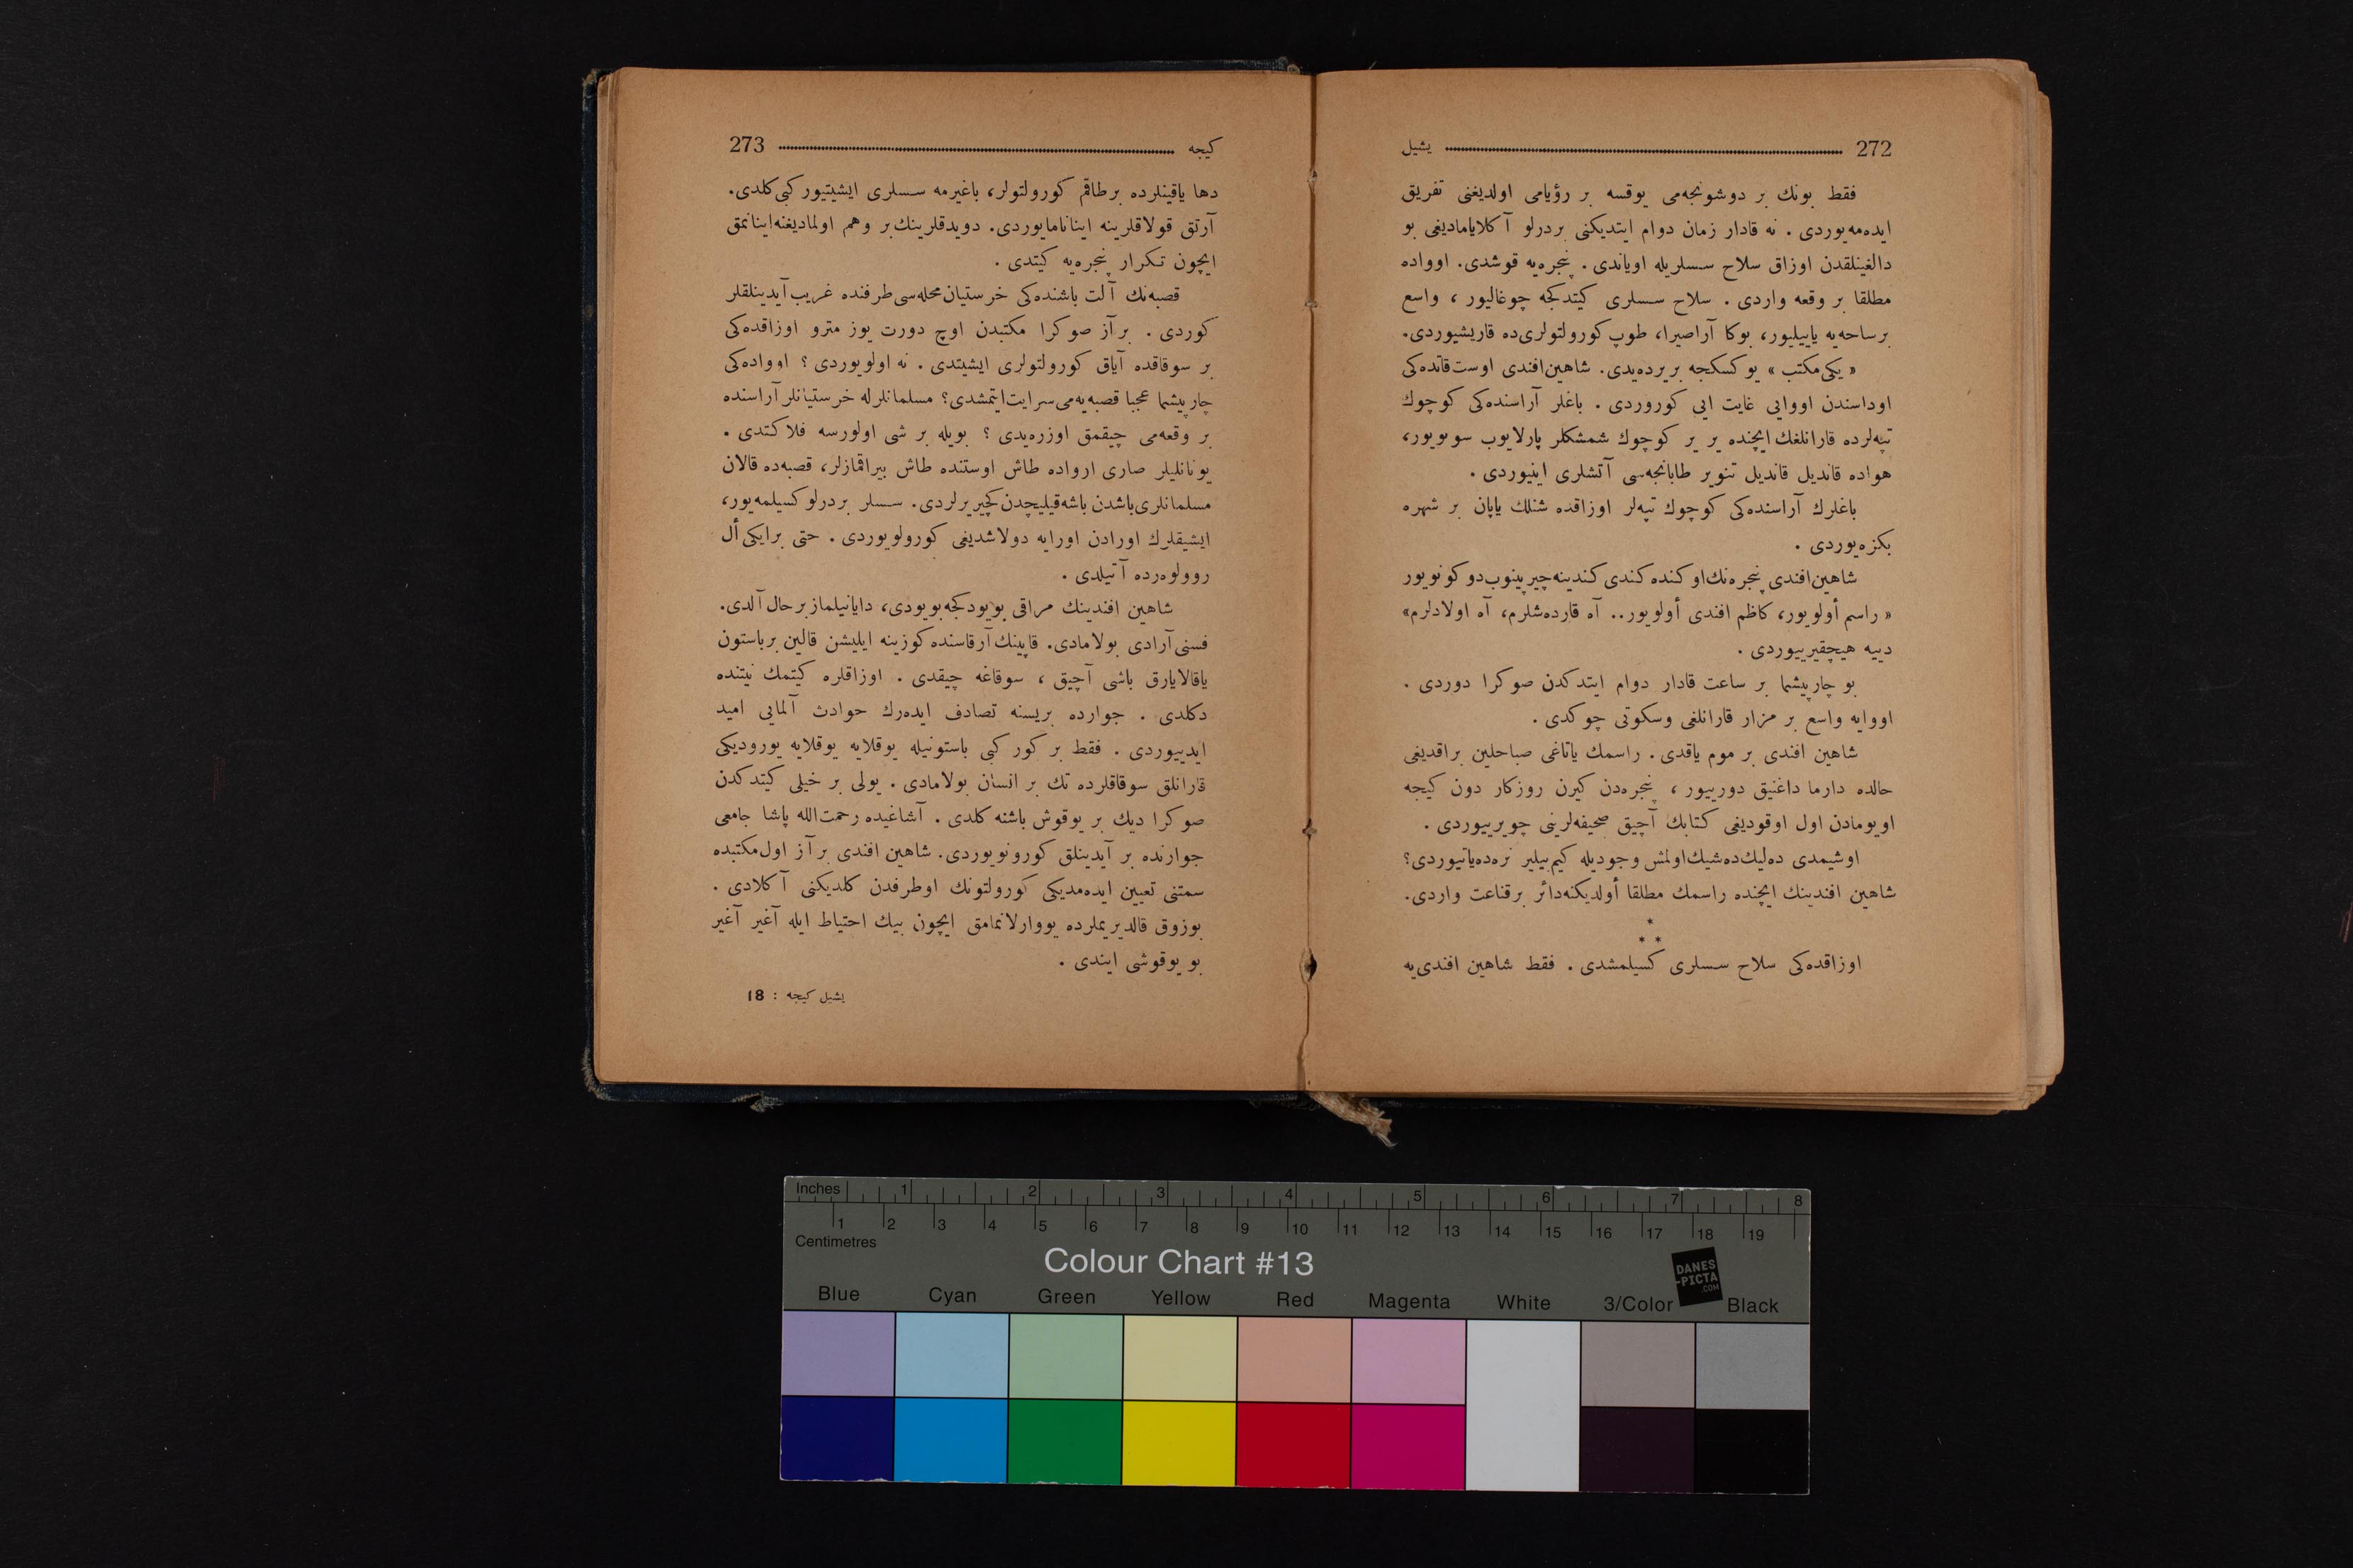 272 يشيل
فقط بونك بر دوشونجه‌می يوقسه بر رؤيامی اولديغنی تفريق
ايده‌مه‌يوردی . نه قادار زمان دوام ايتديكنی بردرلو آكلاياماديغی بو
دالغينلقدن اوزاق سلاح سسلريله اوياندی . پنجره‌يه قوشدی. اوواده
مطلقا بر وقعه واردی . سلاح سسلری كيتدكجه چوغاليور ، واسع
برساحه‌يه ياييليور، بوكا آراصيرا، طوپ كورولتولری‌ده قاريشيوردی.
« يكی مكتب » يوكسكجه بريرده‌يدی. شاهين افندی اوست قاتده‌كی
اوداسندن اووايی غايت ايی كوروردی . باغلر آراسنده‌كی كوچوك
تپه‌لرده قارانلغك ايچنده ير ير كوچوك شمشكلر پارلايوب سونويور،
هواده قانديل قانديل تنوير طابانجه‌سی آتشلری اينيوردی .
باغلرك آراسنده‌كی كوچوك تپه‌لر اوزاقده شنلك ياپان بر شهره
بكزه‌يوردی .
شاهين افندی پنجره‌نك اوكنده كندی كندينه چيرپينوب دوكونويور
« راسم أولويور، كاظم افندی أولويور.. آه قارده‌شلرم، آه اولادلرم»
دييه هيچقيرييوردی .
بو چارپيشما بر ساعت قادار دوام ايتدكدن صوكرا دوردی .
اووايه واسع بر مزار قارانلغی وسكوتی چوكدی .
شاهين افندی بر موم ياقدی . راسمك ياتاغی صباحلين براقديغی
حالده دارما داغنيق دورييور ، پنجره‌دن كيرن روزكار دون كيجه
اويومادن اول اوقوديغی كتابك آچيق صحيفه‌لرينی چويرييوردی .
اوشيمدی ده‌ليك‌ده‌شيك اولمش وجوديله كيم بيلير نره‌ده ياتيوردی؟
شاهين افندينك ايچنده راسمك مطلقا أولديكنه دائر برقناعت واردی.
*
* *
اوزاقده‌كی سلاح سسلری كسيلمشدی . فقط شاهين افندی‌يه
كيجه 273
دها ياقينلرده برطاقم كورولتولر، باغيرمه سسلری ايشيتيور كبی كلدی.
آرتق قولاقلرينه اينانامايوردی. دويدقلرينك بر وهم اولماديغنه اينانمق
ايچون تكرار پنجره‌يه كيتدی .
قصبه‌نك آلت باشنده‌كی خرستيان محله‌سی طرفنده غريب آيدينلقلر
كوردی . برآز صوكرا مكتبدن اوچ دورت يوز مترو اوزاقده‌كی
بر سوقاقده آياق كورولتولری ايشيتدی . نه اولويوردی ؟ اوواده‌كی
چارپيشما عجبا قصبه‌يه‌می سرايت ايتمشدی؟ مسلمانلرله خرستيانلر آراسنده
بر وقعه‌می چيقمق اوزره‌يدی ؟ بويله بر شی اولورسه فلاكتدی .
يونانليلر صاری ارواده طاش اوستنده طاش بيراقمازلر، قصبه‌ده قالان
مسلمانلری باشدن باشه قيليچدن كچيررلردی. سسلر بردرلو كسيلمه‌يور،
ايشيقلرك اورادن اورايه دولاشديغی كورولويوردی . حتی برايكی أل
روولوه‌رده آتيلدی .
شاهين افندينك مراقی بويودكجه بويودی، دايانيلماز برحال آلدی.
فسنی آرادی بولامادی. قاپينك آرقاسنده كوزينه ايليشن قالين برباستون
ياقالايارق باشی آچيق ، سوقاغه چيقدی . اوزاقلره كيتمك نيتنده
دكلدی . جوارده بريسنه تصادف ايده‌رك حوادث آلمايی اميد
ايدييوردی . فقط بر كور كبی باستونيله يوقلايه يوقلايه يوروديكی
قارانلق سوقاقلرده تك بر انسان بولامادی . يولی بر خيلی كيتدكدن
صوكرا ديك بر يوقوش باشنه كلدی . آشاغيده رحمت‌الله پاشا جامعی
جوارنده بر آيدينلق كورونويوردی. شاهين افندی برآز اول مكتبده
سمتنی تعيين ايده‌مديكی كورولتونك اوطرفدن كلديكنی آكلادی .
بوزوق قالديريملرده يووارلانمامق ايچون بيك احتياط ايله آغير آغير
بو يوقوشی ايندی .
يشيل كيجه : 18
Inches 1 2 3 4 5 6 7 8
1 2 3 4 5 6 7 8 9 10 11 12 13 14 15 16 17 18 19
Centimetres
Colour Chart #13
DANES
-PICTA
.COM
Blue Cyan Green Yellow Red Magenta White 3/Color Black